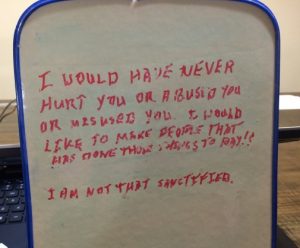 I WOULD HAVE NEVER
HURT YOU OR ABUSED YOU
OR MISUSED YOU. I WOULD
LIKE TO MAKE PEOPLE THAT
HAS DONE THOSE THINGS TO PAY!!
I AM NOT THAT SANCTIFIED.